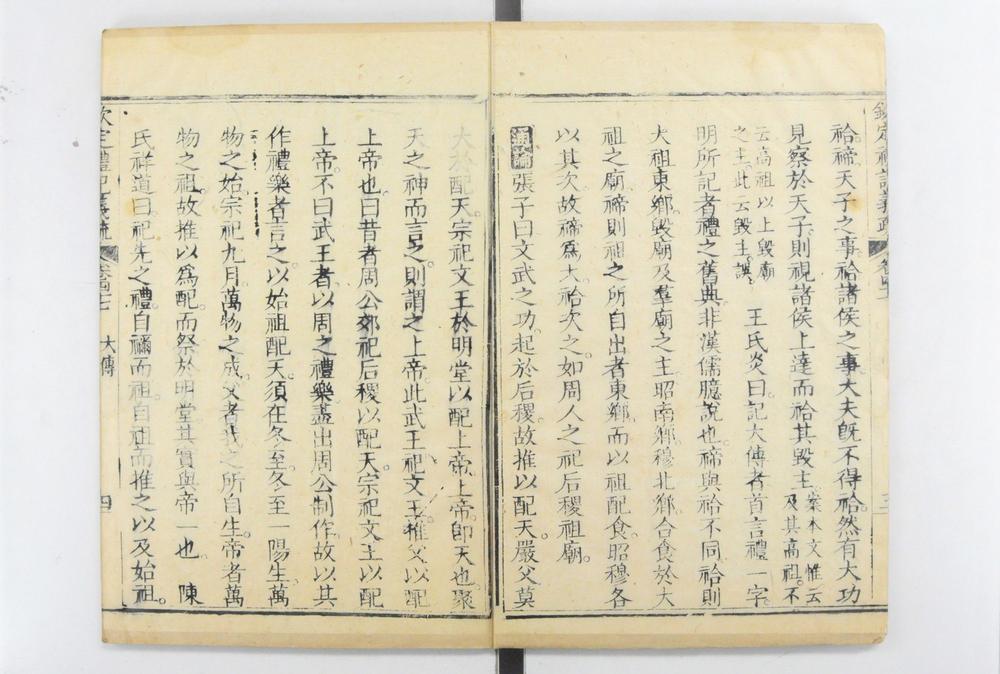 祫禘天子之事。祫諸侯之事。大夫旣不得祫。然有大功
見察於天子。則視諸侯上達而祫其毀主。案本文惟云及其高祖。不
云高祖以上毀廟之主。此云毀主。誤。 王氏炎曰。記大傳者首言禮一字。
明所記者禮之舊典。非漢儒臆說也。禘與祫不同。祫則
大祖東鄉。毀廟及羣廟之主。昭南鄉。穆北鄉。合食於大
祖之廟。禘則祖之所自出者東鄉。而以祖配食。昭穆各
以其次。故禘爲大。祫次之。如周人之祀后稷祖廟。
通論 張子曰文武之功。起於后稷。故推以配天。嚴父莫
大於配天。宗祀文王於明堂以配上帝。上帝卽天也。聚
天之神而言之。則謂之上帝。此武王祀文王。推父以配
上帝也。曰昔者周公郊祀后稷以配天。宗祀文王以配
上帝。不曰武王者。以周之禮樂盡出周公制作。故以其
作禮樂者言之。以始祖配天。須在冬至。冬至一陽生。萬
物之始。宗祀九月。萬物之成。父者我之所自生。帝者萬
物之祖。故推以爲配。而祭於明堂。其實與帝一也。 陳
氏祥道曰。祀先之禮。自禰而祖。自祖而推之。以及始祖。
欽定禮記義疏 大傳 四